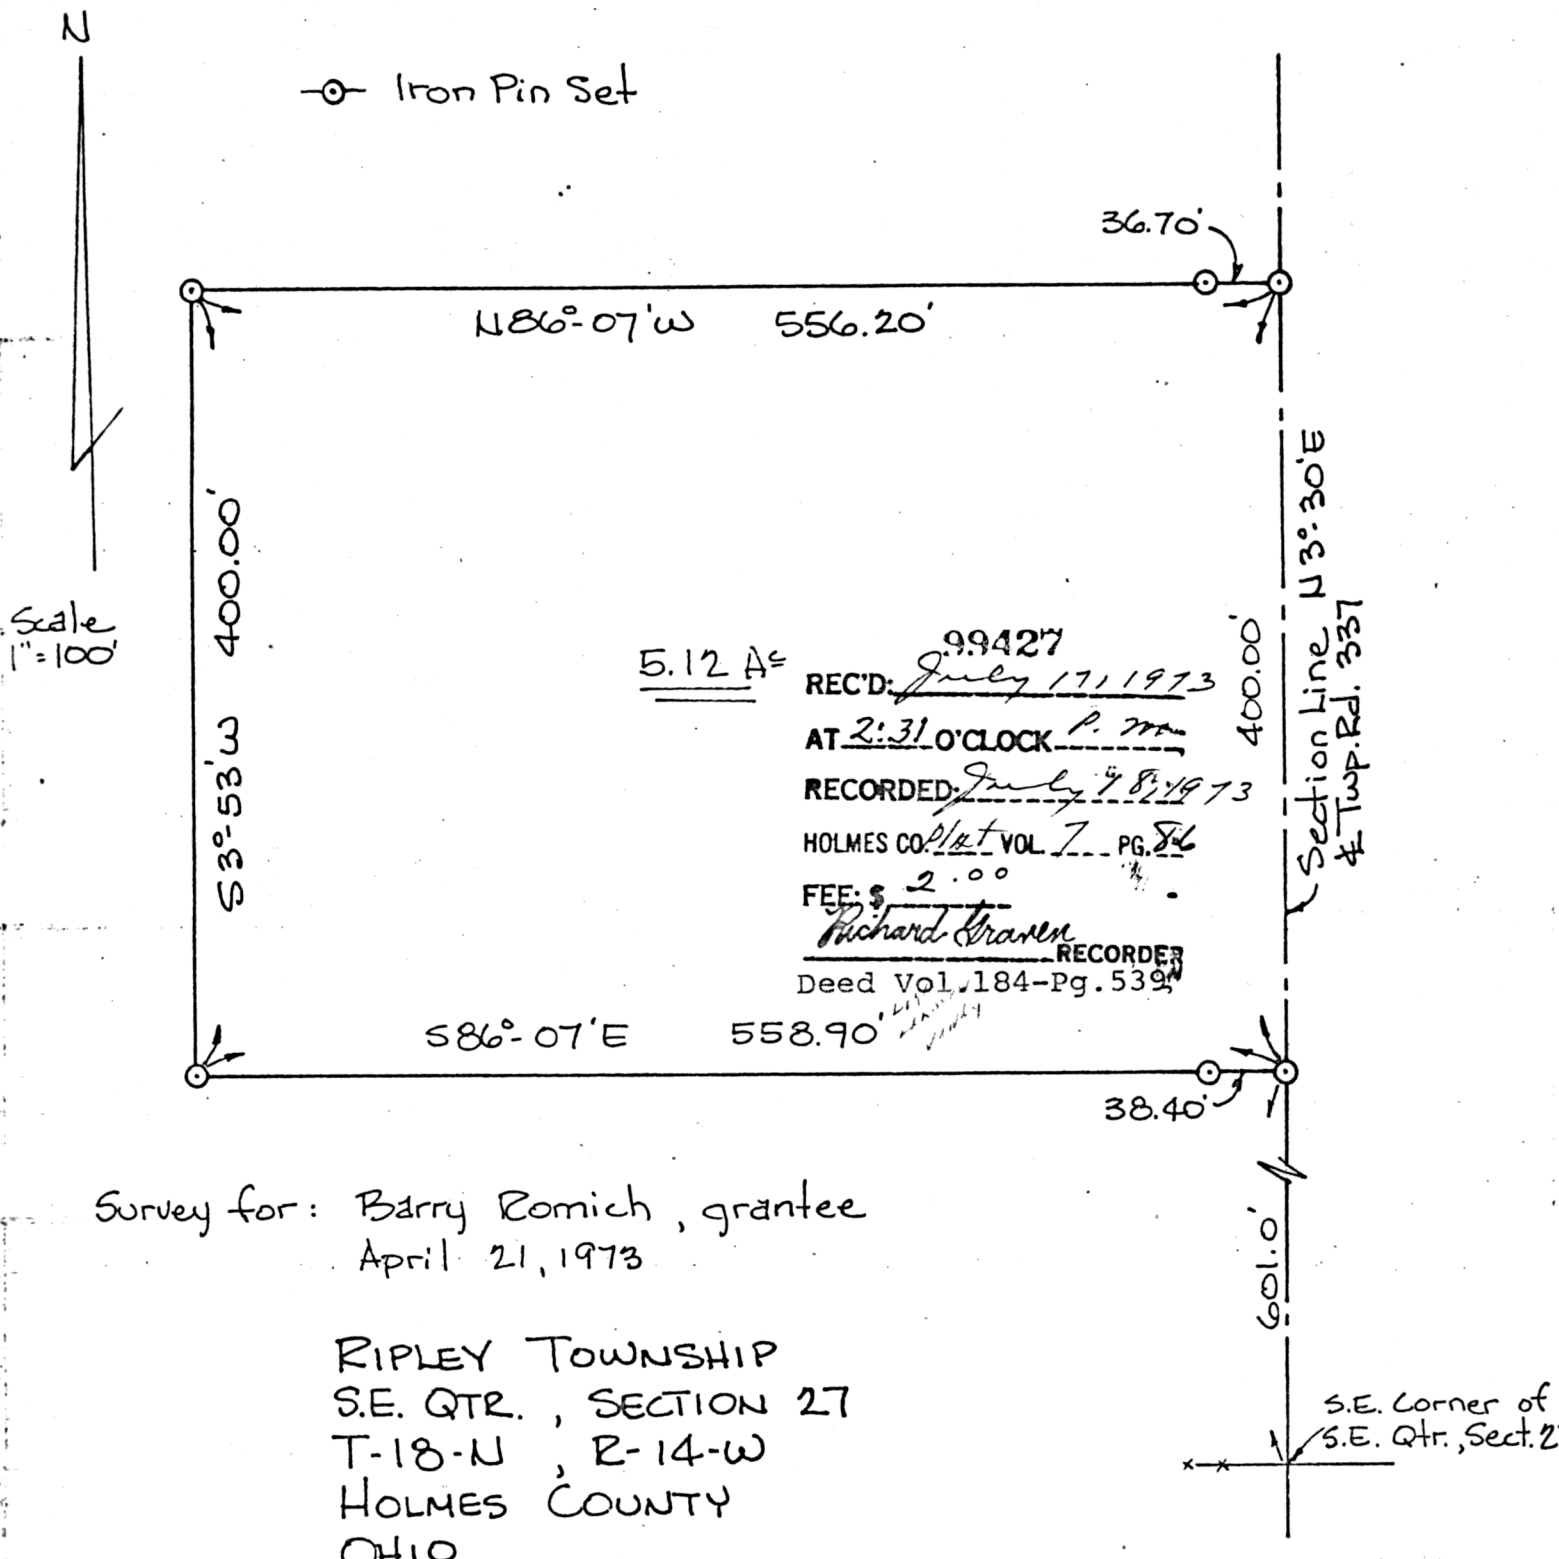 N
Iron Pin Set
36.70'
N86°-07'W 556.20'
S3°-53'W 400.00'
Scale
1"=100'
N3°-30'E
Section Line
℄ Twp. Rd. 337
400.00'
5.12 Ac
99427
REC'D: July 17, 1973
AT 2:31 O'CLOCK P. M
RECORDED: July 18, 1973
HOLMES CO. Plat VOL. 7 PG. 86
FEE: $ 2.00
Richard Graven
RECORDER
Deed Vol.184-Pg.539
S86°-07'E 558.90'
38.40'
601.0'
Survey for: Barry Romich, grantee
April 21, 1973
RIPLEY TOWNSHIP
S.E. QTR., SECTION 27
T-18-N, R-14-W
HOLMES COUNTY
OHIO
S.E. Corner of
S.E. Qtr., Sect. 2